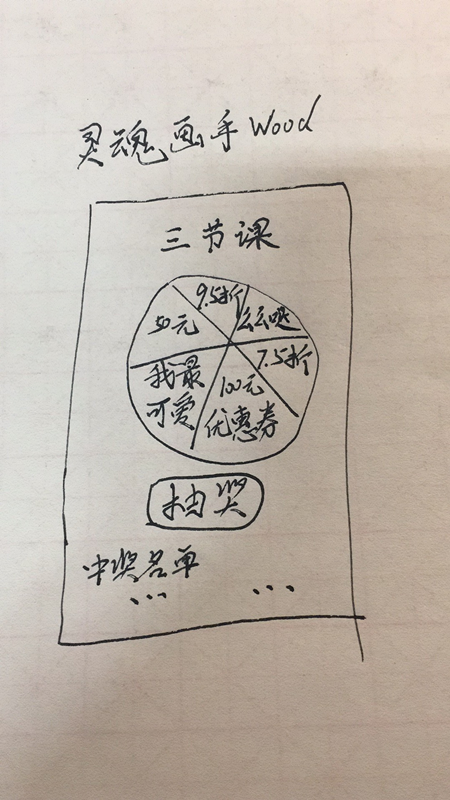 灵魂画手 Wood
三节课
9.5折
50元
么么哒
7.5折
我最
可爱
100元
优惠券
抽奖
中奖名单
... ...